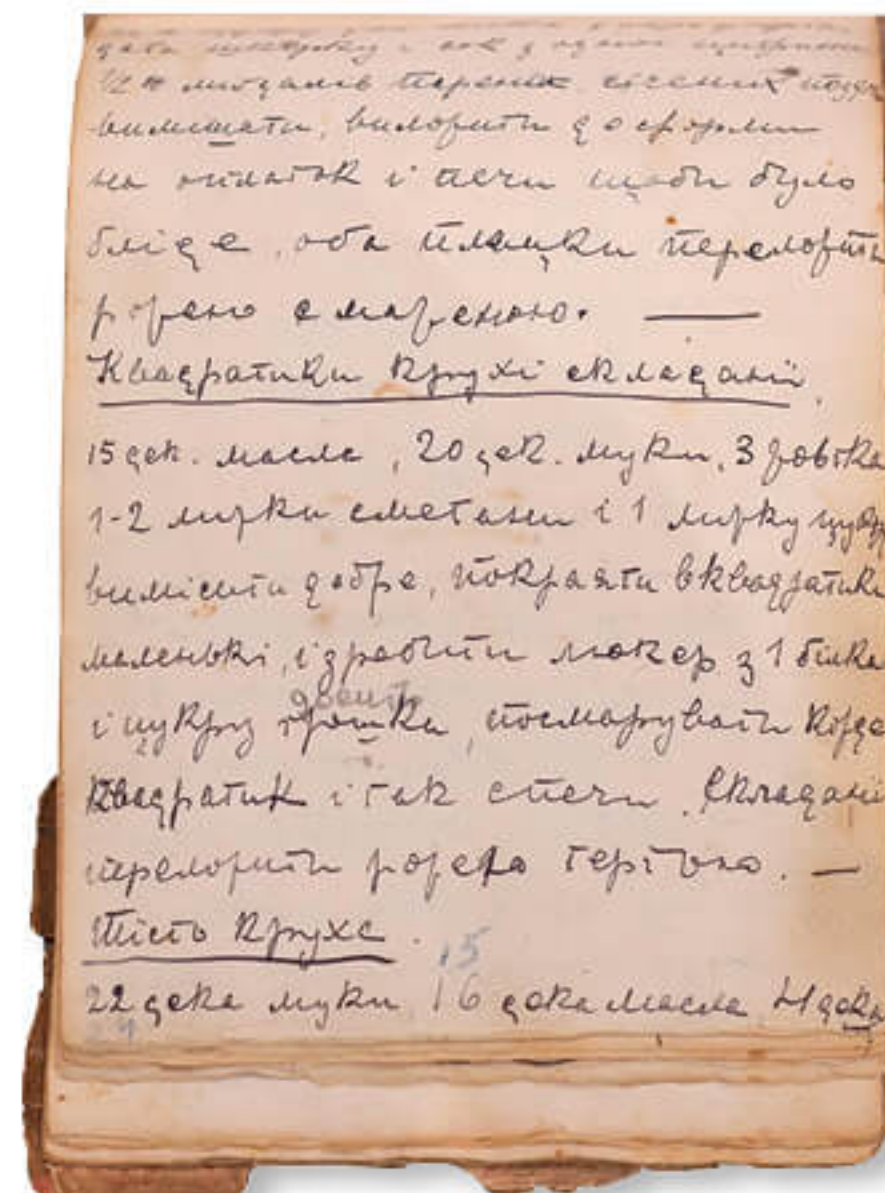 дати шкарку і сок з одной цитрини
1/2 # мигдалів парених січених
вимішати, виложити до форми
на оплаток і печи щоби було
бліде, оба пляцки переложити
рожею смаженою. —
Квадратики крухі складані.
15 дек. масла, 20 дек. муки, 3 жовтка
1-2 лижки сметани і 1 лижку цукру
вимісити добре, покраяти в квадратики
маленькі, і зробити люкер з 1 білка
і цукру трошки, посмарувати кожде
квадратик і так спечи. Складані
переложити рожею тертою. —
Тісто крухе.
15
22 дека муки, 16 дека масла 4 дека